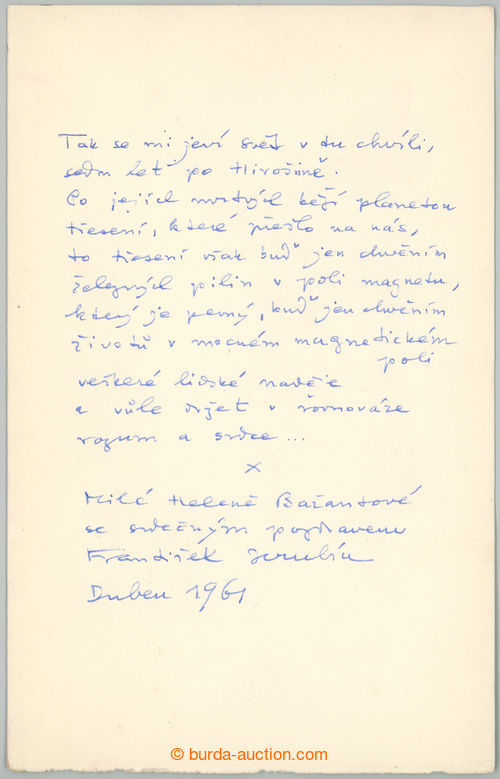 Tak se mi jeví svět v tu chvíli,
sedm let po Hirošimě.
Co jejich mrtvých běží planetou
třesení, které přešlo na nás,
to třesení však buď jen chvěním
železných pilin v poli magnetu,
který je pevný, buď jen chvěním
životů v mocném magnetickém
poli
veškeré lidské naděje
a vůle držet v rovnováze
rozum a srdce...
x
Milé Heleně Bažantové
se srdečným pozdravem
František Hrubín
Duben 1961
© burda-auction.com